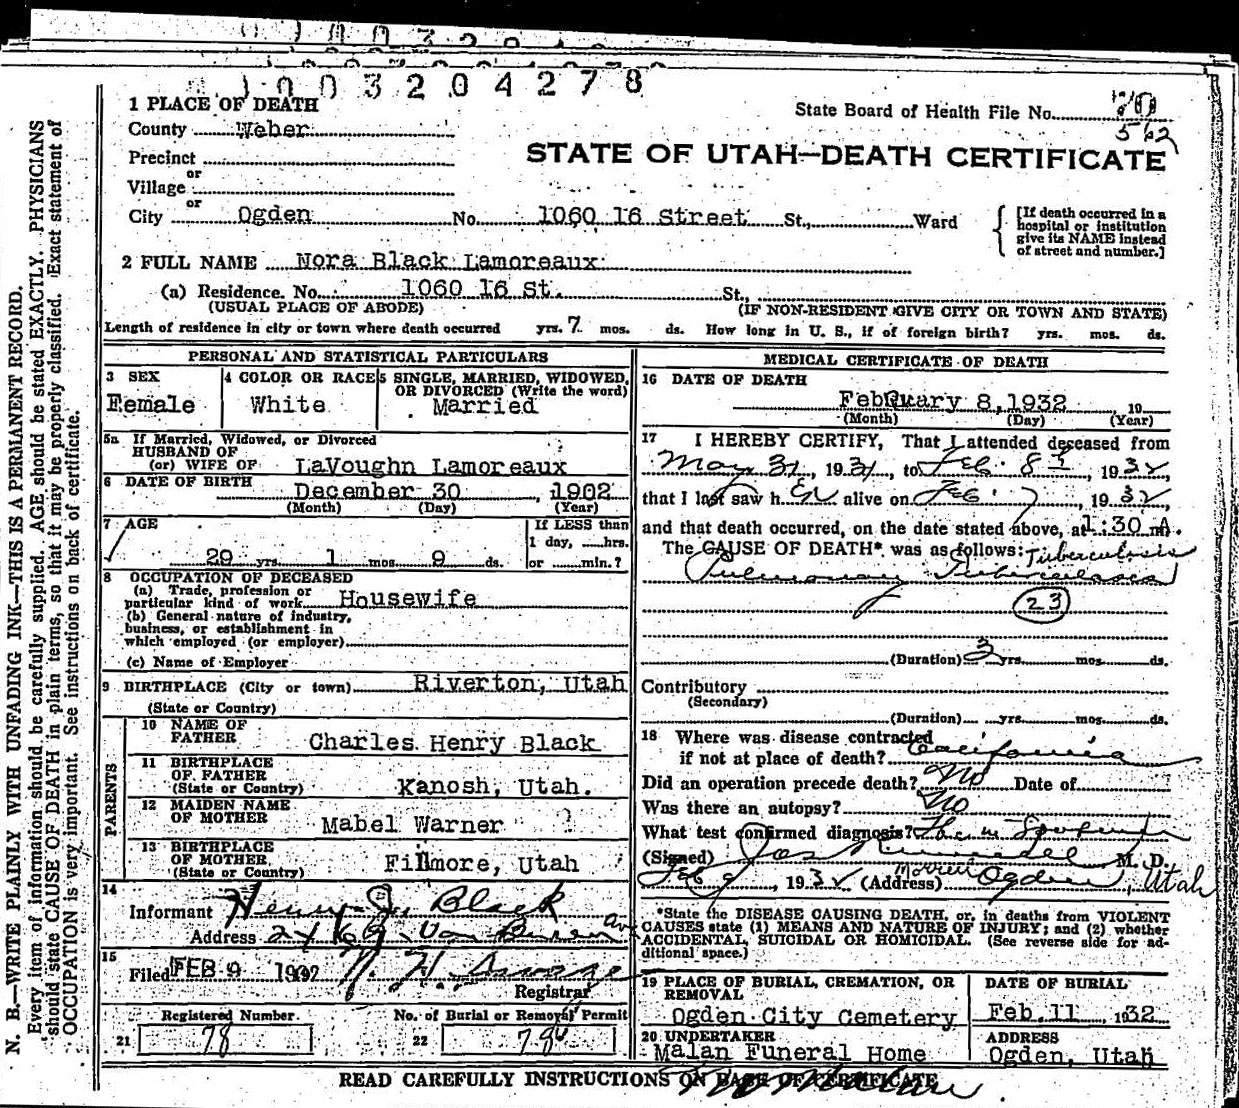 1003204278
1 PLACE OF DEATH
State Board of Health File No. 70
County Weber
562
STATE OF UTAH—DEATH CERTIFICATE
Precinct
or
Village
or
City Ogden No. 1060 16 Street St., Ward
[If death occurred in a
hospital or institution
give its NAME instead
of street and number.]
2 FULL NAME Nora Black Lamoreaux
(a) Residence. No. 1060 16 St. St.,
(USUAL PLACE OF ABODE) (IF NON-RESIDENT GIVE CITY OR TOWN AND STATE)
Length of residence in city or town where death occurred yrs. 7 mos. ds. How long in U. S., if of foreign birth? yrs. mos. ds.
PERSONAL AND STATISTICAL PARTICULARS
3 SEX
Female
4 COLOR OR RACE
White
5 SINGLE, MARRIED, WIDOWED,
OR DIVORCED (Write the word)
Married
5a If Married, Widowed, or Divorced
HUSBAND OF
(or) WIFE OF LaVoughn Lamoreaux
6 DATE OF BIRTH December 30, 1902
(Month) (Day) (Year)
7 AGE
29 yrs. 1 mos. 9 ds.
If LESS than
1 day, hrs.
or min.?
8 OCCUPATION OF DECEASED
(a) Trade, profession or
particular kind of work Housewife
(b) General nature of industry,
business, or establishment in
which employed (or employer)
(c) Name of Employer
9 BIRTHPLACE (City or town) Riverton, Utah
(State or Country)
PARENTS
10 NAME OF
FATHER Charles Henry Black
11 BIRTHPLACE
OF FATHER
(State or Country) Kanosh, Utah.
12 MAIDEN NAME
OF MOTHER Mabel Warner
13 BIRTHPLACE
OF MOTHER
(State or Country) Fillmore, Utah
14
Informant Henry J. Black
Address Van Buren Ave
15
Filed FEB 9 1932
Registrar
Registered Number.
21 78
No. of Burial or Removal Permit
22
MEDICAL CERTIFICATE OF DEATH
16 DATE OF DEATH
February 8, 1932 19
(Month) (Day) (Year)
17 I HEREBY CERTIFY, That I attended deceased from
May 31, 1931, to Feb. 8th, 1932,
that I last saw her alive on Feb. 7, 1932,
and that death occurred, on the date stated above, at 1:30 A m.
The CAUSE OF DEATH* was as follows: Tuberculosis
Pulmonary Tuberculosis
23
(Duration) 3 yrs. mos. ds.
Contributory
(Secondary)
(Duration) yrs. mos. ds.
18 Where was disease contracted
if not at place of death? California
Did an operation precede death? No Date of
Was there an autopsy? No
What test confirmed diagnosis?
(Signed) M. D.
Feb 9, 1932 (Address) Ogden, Utah
*State the DISEASE CAUSING DEATH, or, in deaths from VIOLENT
CAUSES state (1) MEANS AND NATURE OF INJURY; and (2) whether
ACCIDENTAL, SUICIDAL OR HOMICIDAL. (See reverse side for ad-
ditional space.)
19 PLACE OF BURIAL, CREMATION, OR
REMOVAL
Ogden City Cemetery
DATE OF BURIAL
Feb. 11, 1932
20 UNDERTAKER
Malan Funeral Home
ADDRESS
Ogden, Utah
READ CAREFULLY INSTRUCTIONS ON BACK OF CERTIFICATE
N. B.—WRITE PLAINLY WITH UNFADING INK—THIS IS A PERMANENT RECORD.
Every item of information should be carefully supplied. AGE should be stated EXACTLY. PHYSICIANS
should state CAUSE OF DEATH in plain terms, so that it may be properly classified. Exact statement of
OCCUPATION is very important. See instructions on back of certificate.